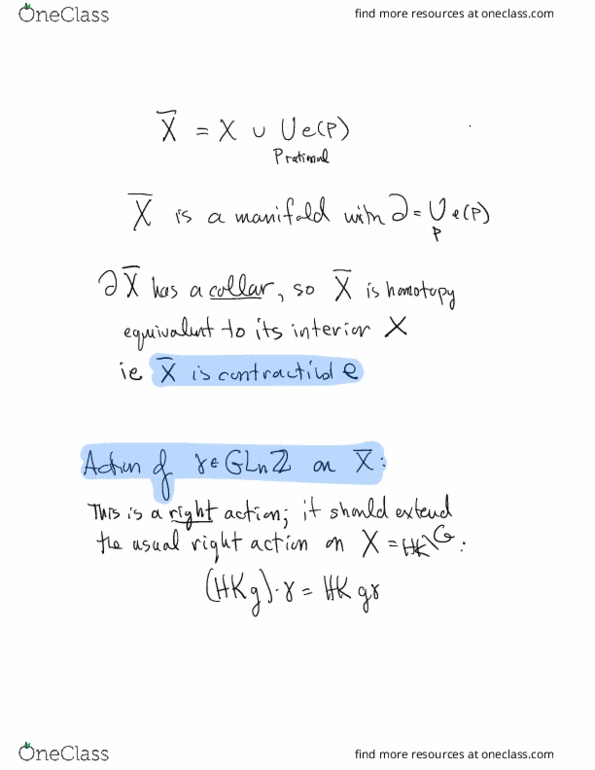 OneClass
find more resources at oneclass.com
X̅ = X ∪ ⋃ e(P)
P rational
X̅ is a manifold with ∂ = ⋃ e(P)
P
∂X̅ has a collar, so X̅ is homotopy
equivalent to its interior X
ie X̅ is contractible
Action of γ∈GLnℤ on X̅:
This is a right action; it should extend
the usual right action on X = HK\G:
(HKg)·γ = HKgγ
OneClass
find more resources at oneclass.com